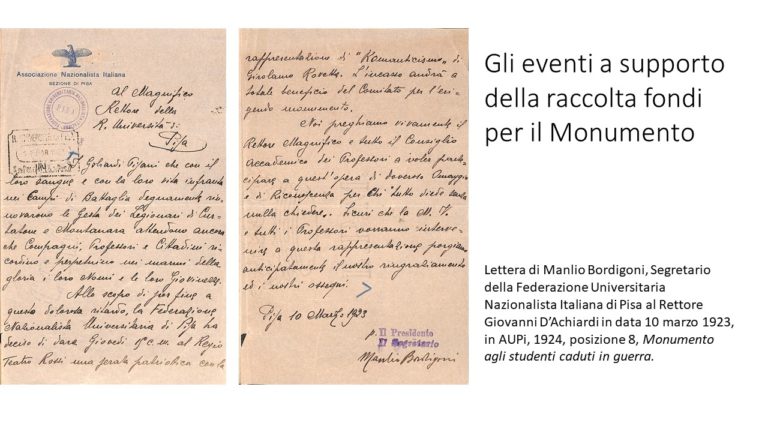 Associazione Nazionalista Italiana
SEZIONE DI PISA
Al Magnifico
Rettore della
R. Università di
Pisa
I Goliardi Pisani che con il
loro sangue e con la loro vita infranta
nei Campi di Battaglia degnamente rin-
novarono le Gesta dei Legionari di Cur-
tatone e Montanara attendono ancora
che Compagni, Professori e Cittadini ri-
cordino e perpetuino nei marmi della
gloria i loro Nomi e le loro Giovinezze.
Allo scopo di por fine a
questo doloroso ritardo, la Federazione
Nazionalista Universitaria di Pisa ha
deciso di dare Giovedì 15 c.m. al Regio
Teatro Rossi una serata patriottica con la
rappresentazione di "Romanticismo" di
Girolamo Rovetta. L'incasso andrà a
totale beneficio del Comitato per l'eri-
gendo monumento.
Noi preghiamo vivamente il
Rettore Magnifico e tutto il Consiglio
Accademico dei Professori a voler parte-
cipare a quest'opera di doveroso Omaggio
e di Riconoscenza per Chi tutto diede senza
nulla chiedere. Sicuri che la M. V.
e tutti i Professori vorranno interve-
nire a questa rappresentazione porgiamo
anticipatamente il nostro ringraziamento
ed i nostri ossequi.
Pisa 10 Marzo 1923
p. Il Presidente
Il Segretario
Manlio Bordigoni
Gli eventi a supporto
della raccolta fondi
per il Monumento
Lettera di Manlio Bordigoni, Segretario
della Federazione Universitaria
Nazionalista Italiana di Pisa al Rettore
Giovanni D'Achiardi in data 10 marzo 1923,
in AUPi, 1924, posizione 8, Monumento
agli studenti caduti in guerra.